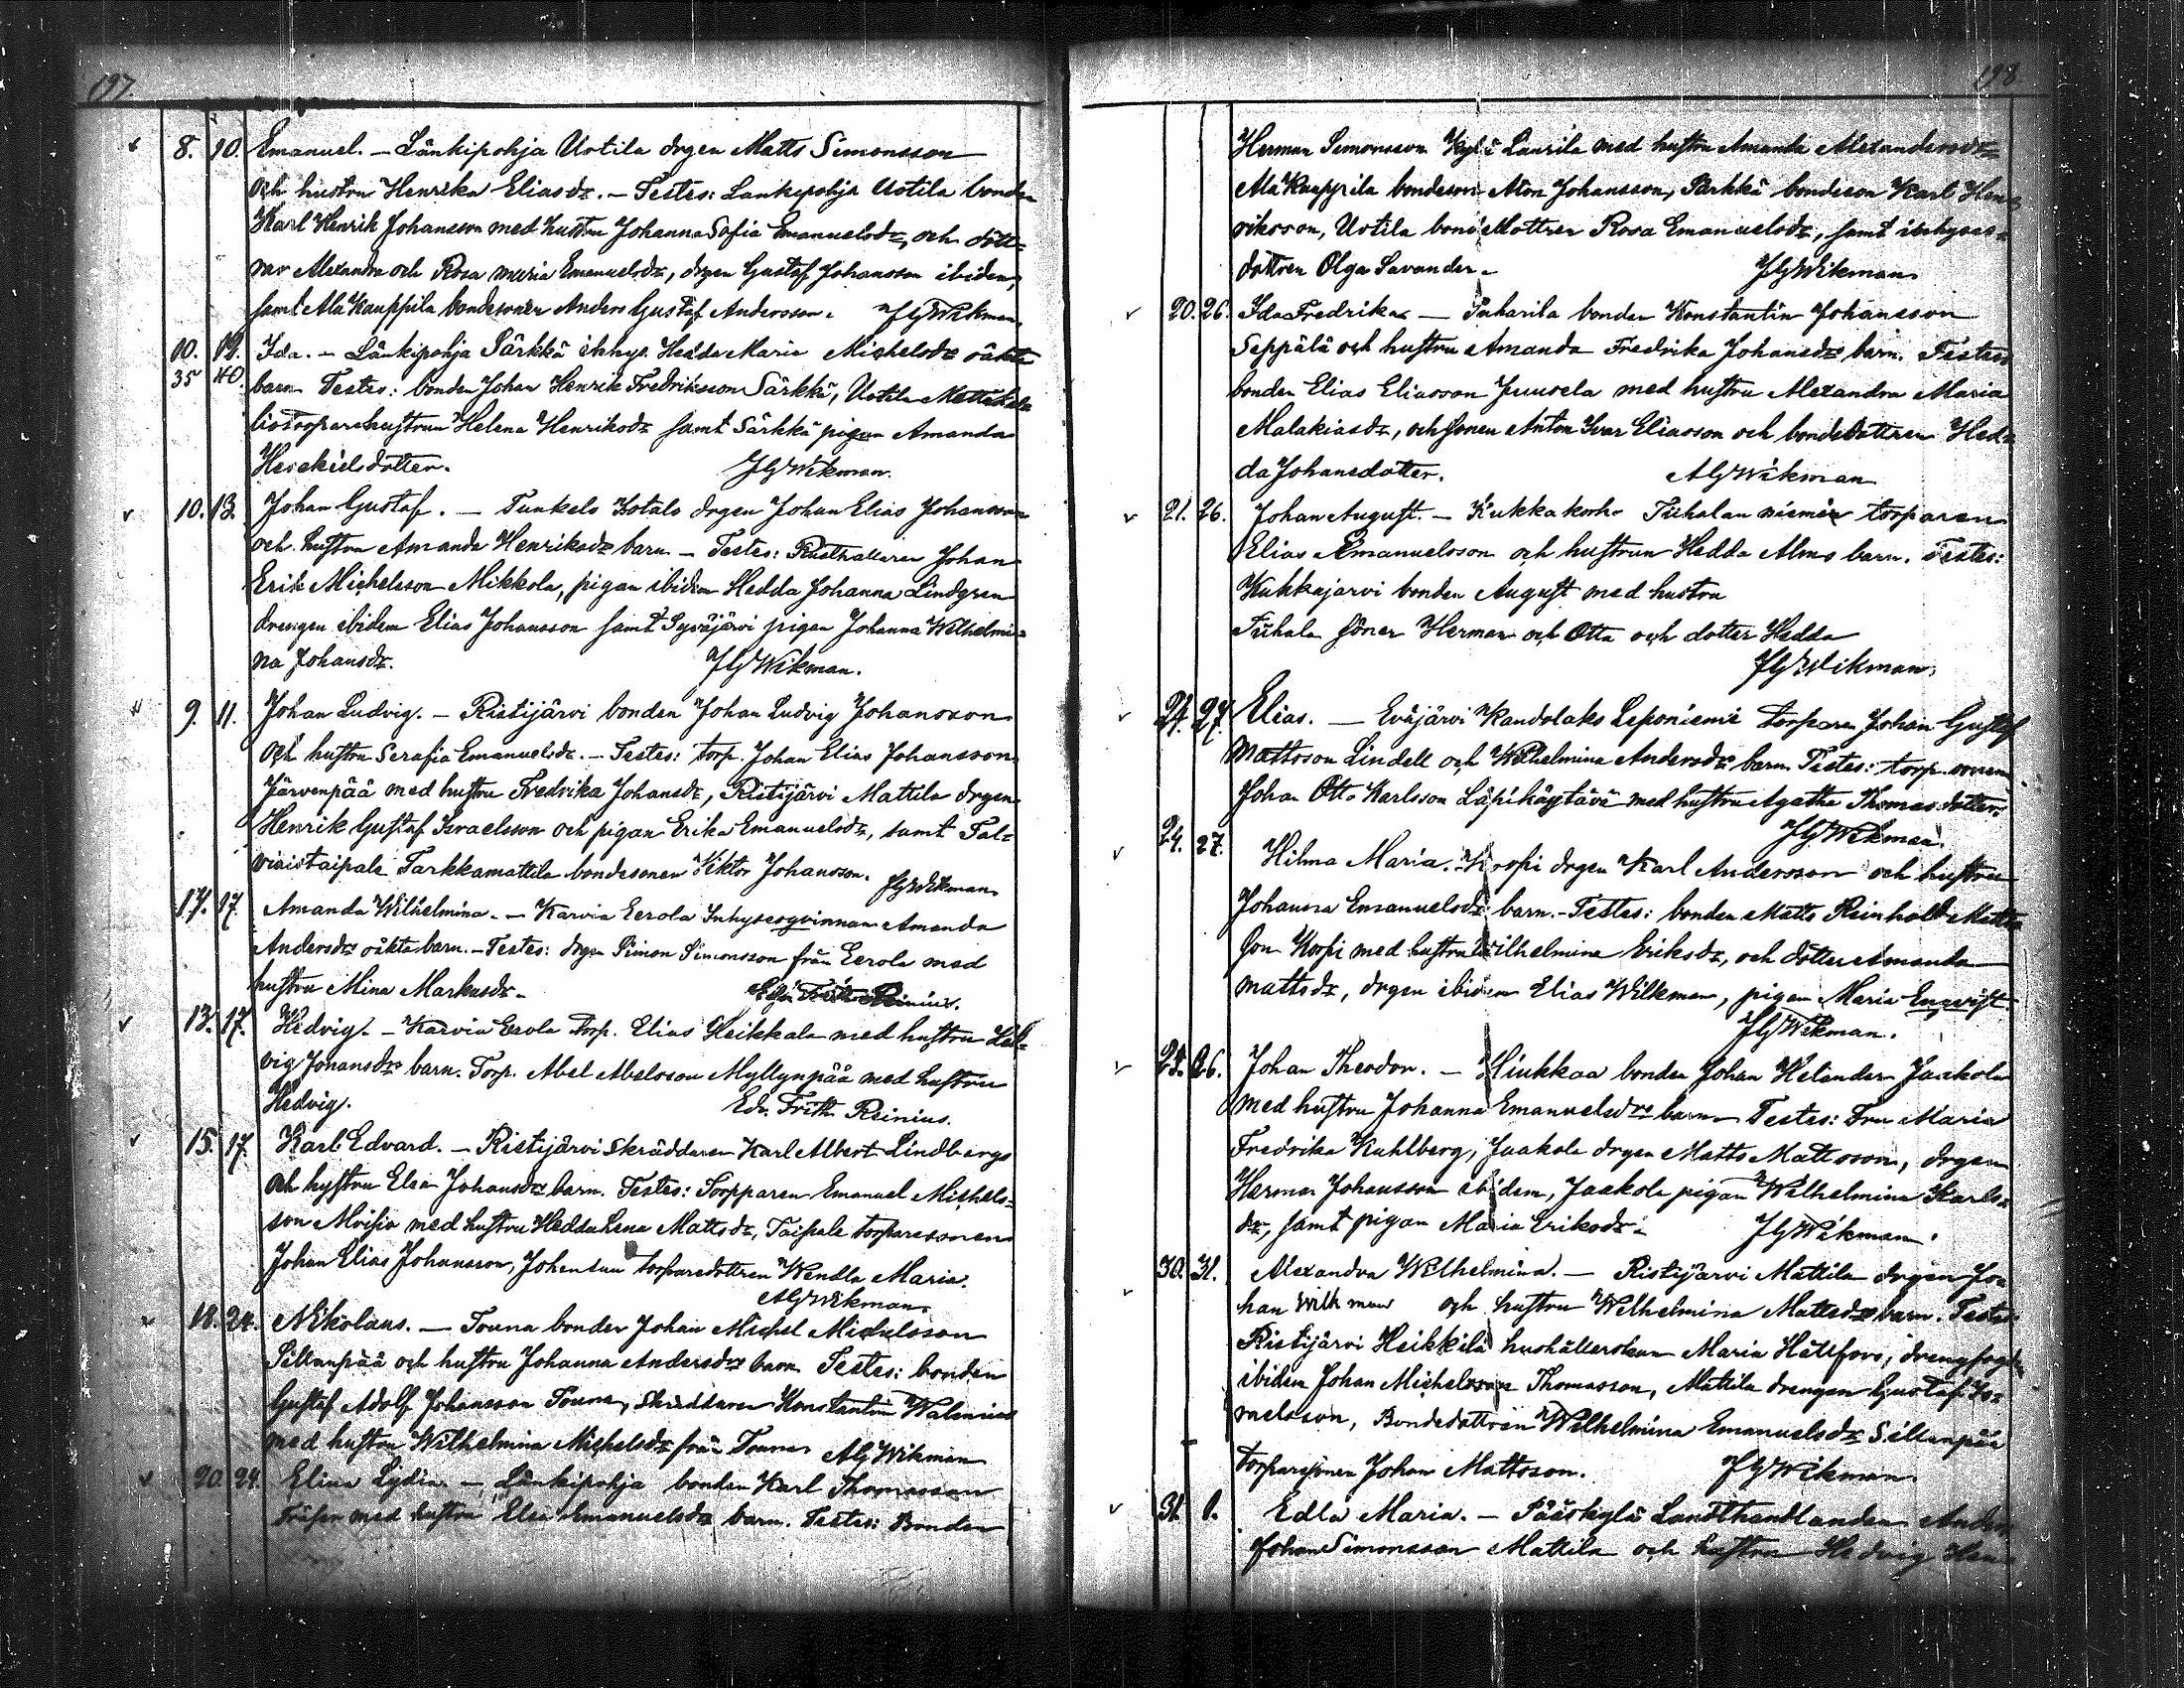 197
8. 10. Emanuel. – Länkipohja Uotila drgen Matts Simonsson
och hustru Henrika Eliasdr. – Testes: Lankipohja Uotila bonden
Karl Henrik Johansson med hustru Johanna Sofia Emanuelsdr, och dött-
rar Alexandra och Rosa maria Emanuelsdr, drgen Gustaf Johansson ibidem,
samt Ala Kauppila bondesonen Anders Gustaf Andersson. JGWikman.
10. 12. Ida. – Länkipohja Särkkä inhys. Hedda Maria Michelsdr oäkta
35 40. barn Testes: bonden Johan Henrik Fredriksson Särkkä, Uotila
torparehustrun Helena Henriksdr samt Särkkä pigan Amanda
Hesekielsdotter. JGWikman.
10. 13. Johan Gustaf. – Tunkelo Kotalo drgen Johan Elias Johansson
och hustru Amanda Henriksdr barn – Testes: Rusthållaren Johan
Erik Michelsson Mikkola, pigan ibidem Hedda Johanna Lindgren
drengen ibidem Elias Johansson samt Syväjärvi pigan Johanna Wilhelmi-
na Johansdr. JGWikman.
9. 11. Johan Ludvig. – Ristijärvi bonden Johan Ludvig Johansson
och hustru Serafia Emanuelsdr. – Testes: torp. Johan Elias Johansson
Järvenpää med hustru Fredrika Johansdr, Ristijärvi Mattila drgen
Henrik Gustaf Israelsson och pigan Erika Emanuelsdr, samt Tal-
viaistaipale Tarkkamattila bondesonen Viktor Johansson. JGWikman
17. 17. Amanda Wilhelmina. – Karvia Eerola Inhysesqvinnan Amanda
Andersdrs oäkta barn. – Testes: drgen Simon Simonsson från Eerola med
hustru Mina Markusdr. Edv. Frith. Reinius.
13. 17. Hedvig. – Karvia Erola torp. Elias Heikkala med hustru Hed-
vig Johansdrs barn. Torp. Abel Abelsson Myllynpää med hustru
Hedvig. Edv. Frith. Reinius.
15. 17. Karl Edvard. – Ristijärvi Skräddaren Karl Albert Lindbergs
och hustru Elsa Johansdrs barn. Testes: Torpparen Emanuel Michels-
son med hustru Hedda Lena Mattsdr, Taipale torparesonen
Johan Elias Johansson, torparedottren Wendla Maria.
AGWikman.
18. 24. Nikolaus. – Touna bonden Johan Michel Michelsson
Sillanpää och hustru Johanna Andersdrs barn Testes: bonden
Gustaf Adolf Johansson Touna, Skräddaren Konstantin Walenius
med hustru Wilhelmina Michelsdr från Touna AGWikman
20. 24. Elina Lydia. – Länkipohja bonden Karl Thomasson
med hustru Elsa Emanuelsdr barn. Testes: Bonden
198
Herman Simonsson Kylä Laurila med hustru Amanda Alexandersdr
Ala Kauppila bondeson Aton Johansson, Särkkä bondeson Karl Hen-
riksson, Uotila bondedottren Rosa Emanuelsdr, samt inhyses-
dottren Olga Savander. JGWikman
20. 26. Ida Fredrika. – Puharila bonden Konstantin Johansson
Seppälä och hustru Amanda Fredrika Johansdrs barn. Testes
bonden Elias Eliasson Juusela med hustru Alexandra Maria
Malakiasdr, och sonen Anton Ivar Eliasson och bondedottren Hed-
da Johansdotter. AGWikman
21. 26. Johan August. – Kukkakorh. Tiihalanniemen torparen
Elias Emanuelsson och hustrun Hedda Almas barn. Testes:
Kukkajarvi bonden August med hustru
Tiihala söner Herman och Otto och dotter Hedda
JGWikman.
24. 27. Elias. – Eväjärvi Kandolaks Leponiemi torparen Johan Gustaf
Mattsson Lindell och Wilhelmina Andersdrs barn Testes: torp.sonen
Johan Otto Karlsson Läpikäytävä med hustru Agatha Thomasdotter.
JGWikman.
24. 27. Hilma Maria. Korpi drgen Karl Andersson och hustru
Johanna Emanuelsdr barn. – Testes: bonden Matts Reinhold Matts-
son Korpi med hustru Wilhelmina Eriksdr, och dotter Amanda
Mattsdr, drgen ibidem Elias Wilkman, pigan Maria Enqvist
JGWikman.
24. 26. Johan Theodor. – Hiukkaa bonden Johan Helander Jaakola
med hustru Johanna Emanuelsdrs barn – Testes: Fru Maria
Fredrika Kuhlberg, Jaakola drgen Matts Mattsson, drgen
Herman Johansson ibidem, Jaakola pigan Wilhelmina Karls-
dr, samt pigan Maria Eriksdr. JGWikman.
30. 31. Alexandra Wilhelmina. – Ristijärvi Mattila drgen Jo-
han Wilkman och hustru Wilhelmina Mattsdrs barn. Testes
Ristijärvi Heikkilä hushållerskan Maria Hällfors, drengfogden
ibidem Johan Michelsson Thomasson, Mattila drengen Gustaf
Bondedottren Wilhelmina Emanuelsdr Sillanpää
torparesonen Johan Mattsson. JGWikman
31. 1. Edla Maria. – Pääskylä Landthandlanden Anders
Johan Simonsson Mattila och hustru Hedvig Hen-